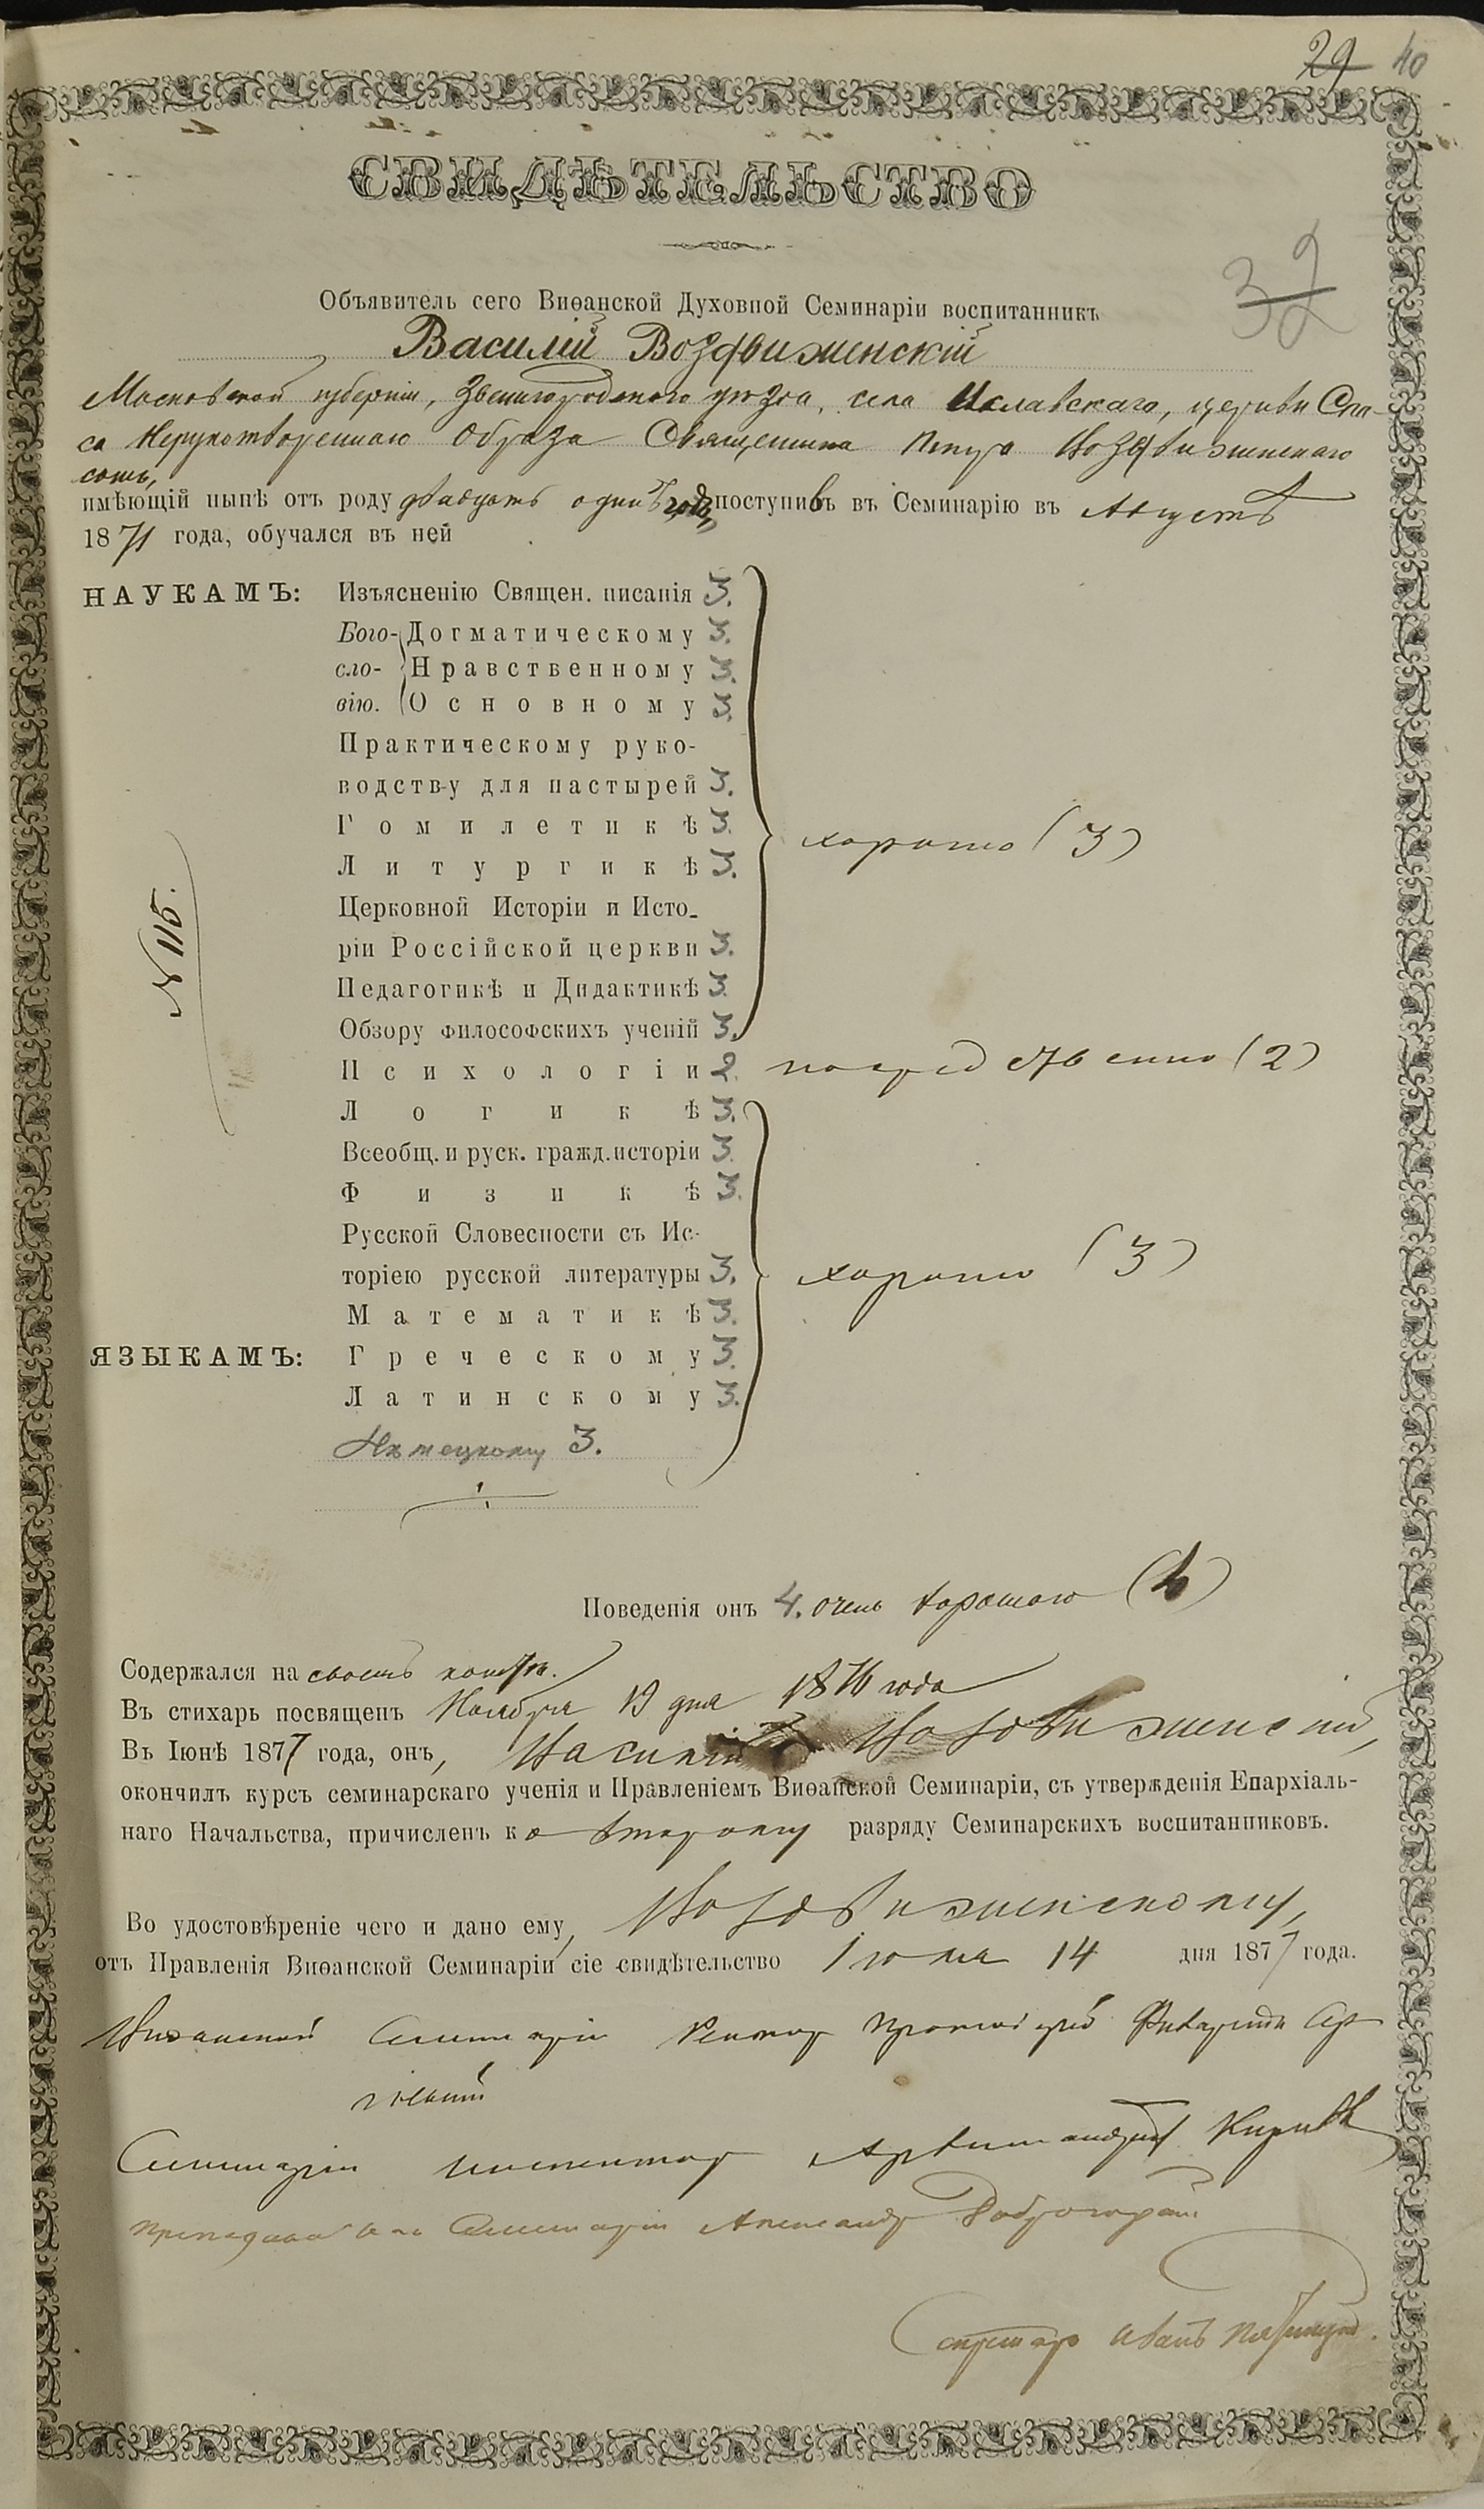 29 40
СВИДѢТЕЛЬСТВО
32
Объявитель сего Виѳанской Духовной Семинаріи воспитанникъ
Василій Воздвиженскій
Московской губерніи, Звенигородскаго уѣзда, села Иславскаго, церкви Спа-
са Нерукотвореннаго Образа Священника Петра Воздвиженскаго
сынъ,
имѣющій нынѣ отъ роду двадцать одинъ годъ, поступивъ въ Семинарію въ Августѣ
1871 года, обучался въ ней
НАУКАМЪ: Изъясненію Священ. писанія 3.
Бого- Догматическому 3.
сло- Нравственному 3.
вію. Основному 3.
Практическому руко-
водству для пастырей 3.
Гомилетикѣ 3.
хорошо (3)
Литургикѣ 3.
Церковной Исторіи и Исто-
ріи Россійской церкви 3.
№ 115.
Педагогикѣ и Дидактикѣ 3.
Обзору философскихъ ученій 3.
Психологіи 2. посредственно (2)
Логикѣ 3.
Всеобщ. и руск. гражд. исторіи 3.
Физикѣ 3.
Русской Словесности съ Ис-
торіею русской литературы 3. хорошо (3)
Математикѣ 3.
ЯЗЫКАМЪ: Греческому 3.
Латинскому 3.
Нѣмецкому 3.
Поведенія онъ 4. очень хорошаго (4)
Содержался на своемъ коштѣ.
Въ стихарь посвященъ Ноября 19 дня 1876 года
Въ Іюнѣ 1877 года, онъ, Василій Воздвиженскій,
окончилъ курсъ семинарскаго ученія и Правленіемъ Виѳанской Семинаріи, съ утвержденія Епархіаль-
наго Начальства, причисленъ ко второму разряду Семинарскихъ воспитанниковъ.
Во удостовѣреніе чего и дано ему, Воздвиженскому,
отъ Правленія Виѳанской Семинаріи сіе свидѣтельство Іюля 14 дня 1877 года.
Виѳанской Семинаріи Ректор Протоіерей Филаретъ Сер-
гіевскій
Семинаріи инспектор Архимандритъ
Преподаватель Семинаріи Александр
Секретарь Иванъ